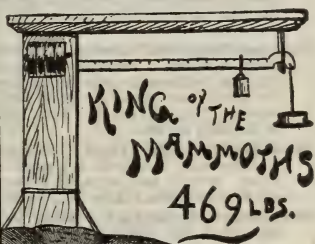 KING OF THE
MAMMOTHS
469 LBS.